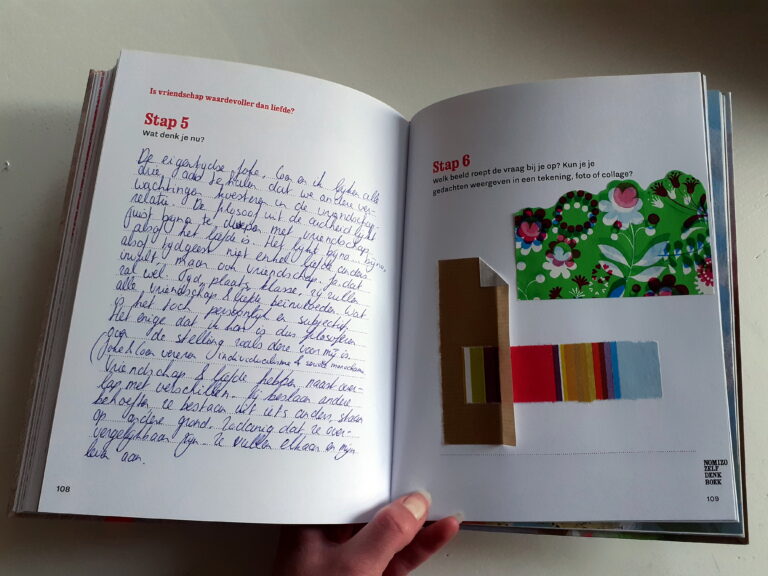 Is vriendschap waardevoller dan liefde?
Stap 5
Wat denk je nu?
De eigentijdse Joke, Loon en ik lijken alle
drie
dat we andere ver-
wachtingen, investeren in de vriendschap-
relatie. De filosoof uit de oudheid lijkt
juist bijna te
met vriendschap,
alsof het liefde is. Het lijkt bijna
alsof tijdgeest niet enkel liefde anders
invult, maar ook vriendschap. Ja, dat
zal wel. Tijd, plaats, klasse, zij zullen
alle vriendschap & liefde beïnvloeden. Wat
is het toch persoonlijk en subjectief.
Het enige dat ik kan is dus filosoferen
over de stelling zoals deze voor mij is.
individualisme &
Vriendschap & liefde hebben naast over-
lap, met verschillen. Zij beslaan andere
behoeften, ze bestaan uit iets anders, staan
op andere grond. Zodanig dat ze on-
vergelijkbaar zijn. Ze vullen elkaar en mijn
leven aan.
108
Stap 6
Welk beeld roept de vraag bij je op? Kun je je
gedachten weergeven in een tekening, foto of collage?
NOMIZO
ZELF
DENK
BOEK
109